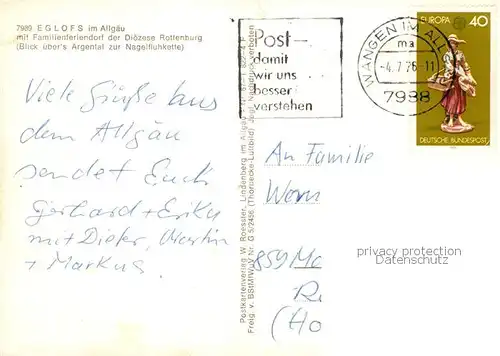 7989 EGLOFS im Allgäu
mit Familienferiendorf der Diözese Rottenburg
(Blick über's Argental zur Nagelfluhkette)
Viele Grüße aus
dem Allgäu
sendet Euch
Gerhard + Erika
mit Dieter, Martin
+ Markus.
Postkartenverlag W. Roessler, Lindenberg im Allgäu
Freig. v. BStMIWuV Nr. G 5/2456 (Thorbecke-Luftbild) Jegl. Nachdruck verboten
Post-
damit
wir uns
besser
verstehen
WANGEN IM ALLGÄU
ma
-4.7.76-11
7988
EUROPA 40
DEUTSCHE BUNDESPOST
An Familie
859 Ma
(Ho
privacy protection
Datenschutz